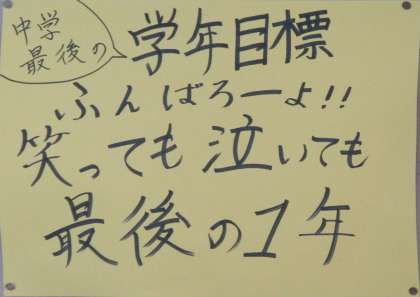 中学
最後の
学年目標
ふんばろーよ!!
笑っても泣いても
最後の1年